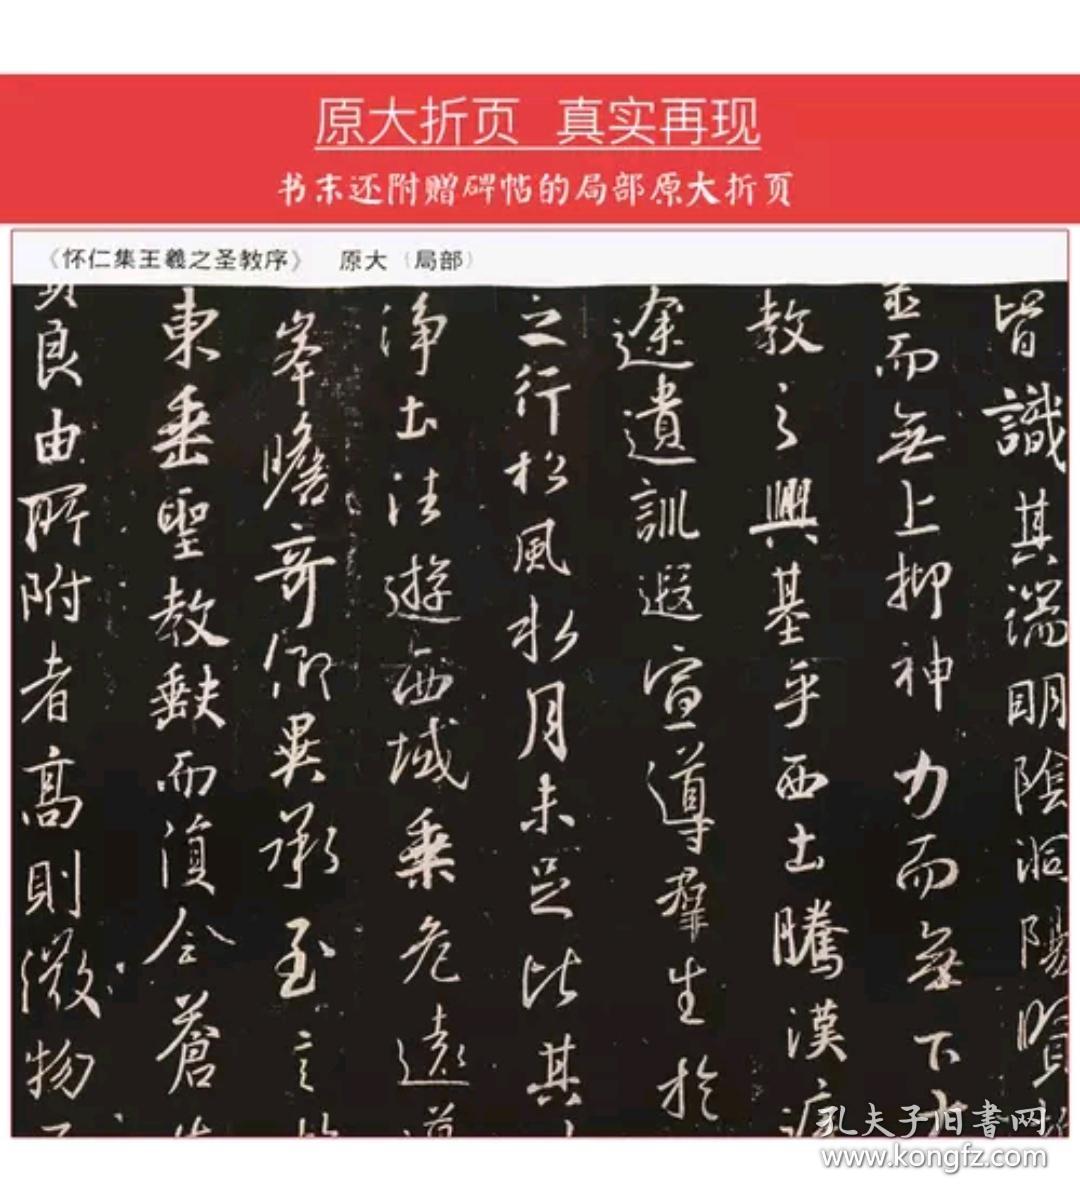 原大折页 真实再现
书末还附赠碑帖的局部原大折页
《怀仁集王羲之圣教序》 原大（局部）
皆識其端明陰洞陽賢
而無上抑神力而無下大
教之興基乎西土騰漢庭
途遺訓遐宣導群生於
之行松風水月未足比其
淨土法遊西域乘危遠邁
峯瞻奇仰異承至言於
東垂聖教缺而復全蒼生
良由所附者高則微物不
孔夫子旧书网
www.kongfz.com